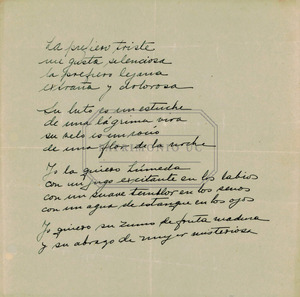 La prefiero triste
mi gusta silenciosa
la prefiero lejana
extraña y dolorosa
Su luto es un estuche
de una lágrima viva
su velo es un rocío
de una flor de la noche
Yo la quiero húmeda
con un jugo excitante en los labios
con un suave temblor en los senos
con un agua de estanque en los ojos
Yo quiero su zumo de fruta madura
y su abrazo de mujer misteriosa